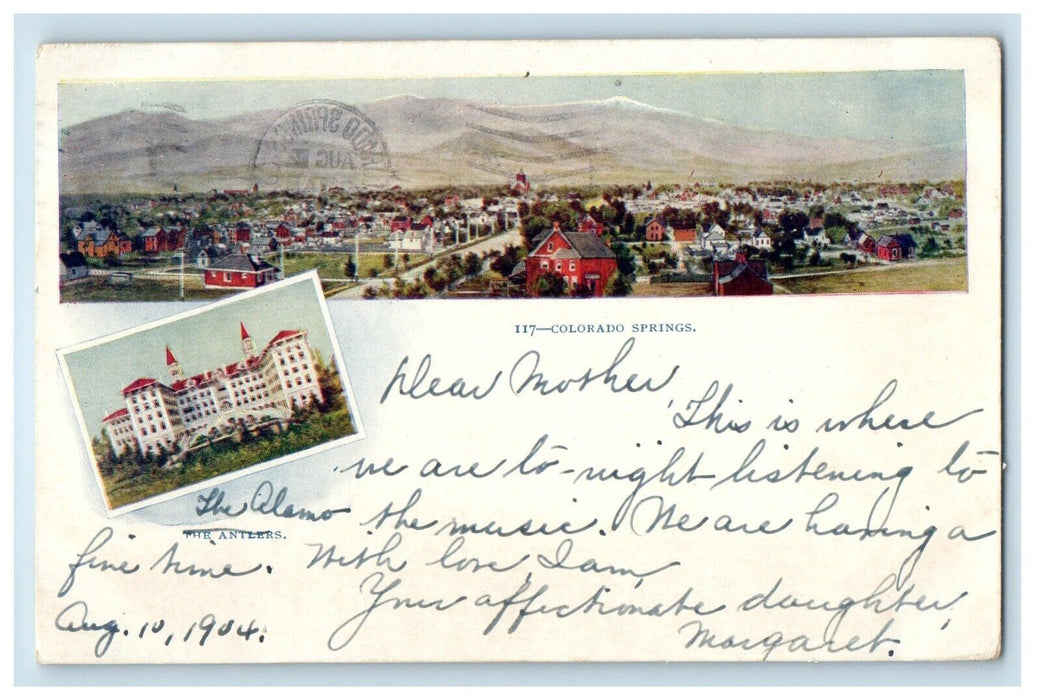 117—COLORADO SPRINGS.
Dear Mother,
This is where
we are to-night listening to
The Alamo
the music. We are having a
THE ANTLERS.
fine time. With love, I am,
Your affectionate daughter,
Aug. 10, 1904.
Margaret.